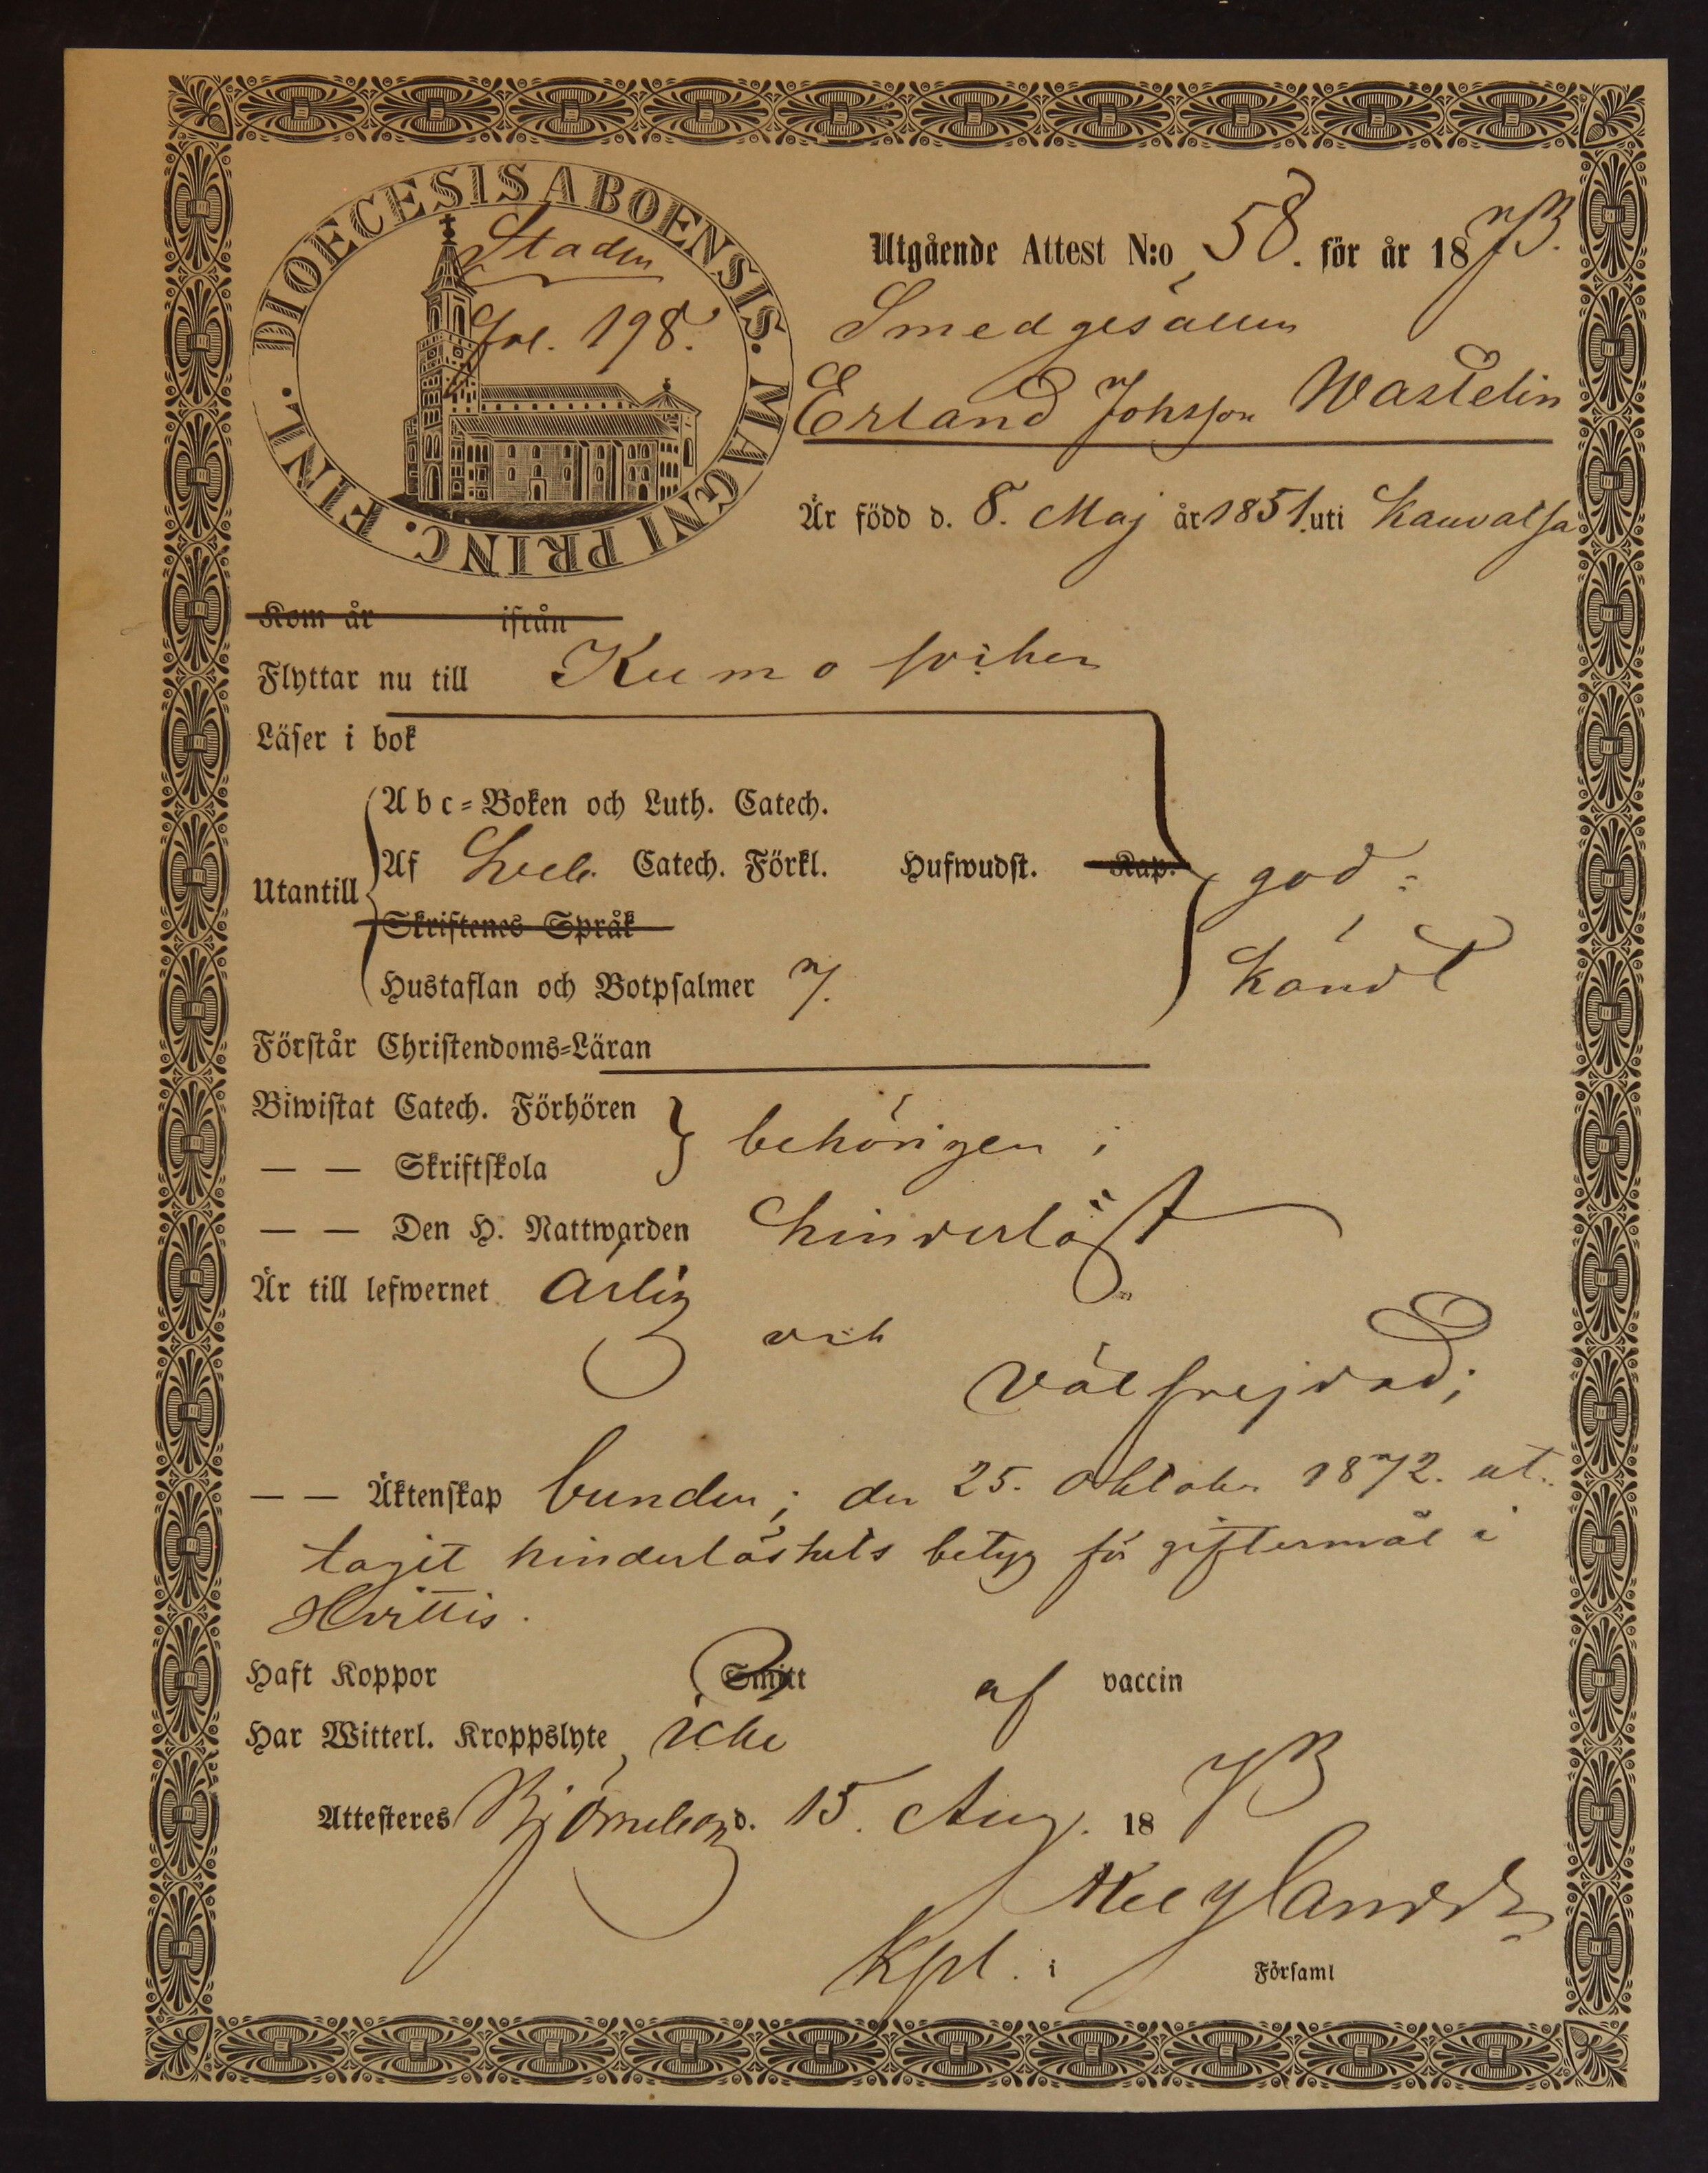 DIOECESIS ABOENSIS. MAGNI PRINC. FINL.
Staden
Fol. 198.
Utgående Attest N:o 58. för år 1873.
Smedgesällen
Erland Johsson Wastelin
Är född d. 8. Maj år 1851. uti Kauvatsa
Kom år ifrån
Flyttar nu till Kumo socken
Läser i bok
Abc-Boken och Luth. Catech.
Utantill Af Sveb. Catech. Förkl. Hufwudst. Kap.
Skriftenes Språk
Hustaflan och Botpsalmer 7.
god-
känd
Förstår Christendoms-Läran
Biwistat Catech. Förhören
— — Skriftskola
behörigen;
— — Den H. Nattwarden hinderlöst
Är till lefwernet ärlig
och
välfrejdad;
— — Äktenskap bunden; den 25. Oktober 1872. ut-
tagit hinderlöshets betyg för giftermål i
Hvittis.
Haft Koppor Smitt af vaccin
Har Witterl. Kroppslyte, icke
Attesteres Björneborg d. 15. Aug. 1873
Kpl. i Församl